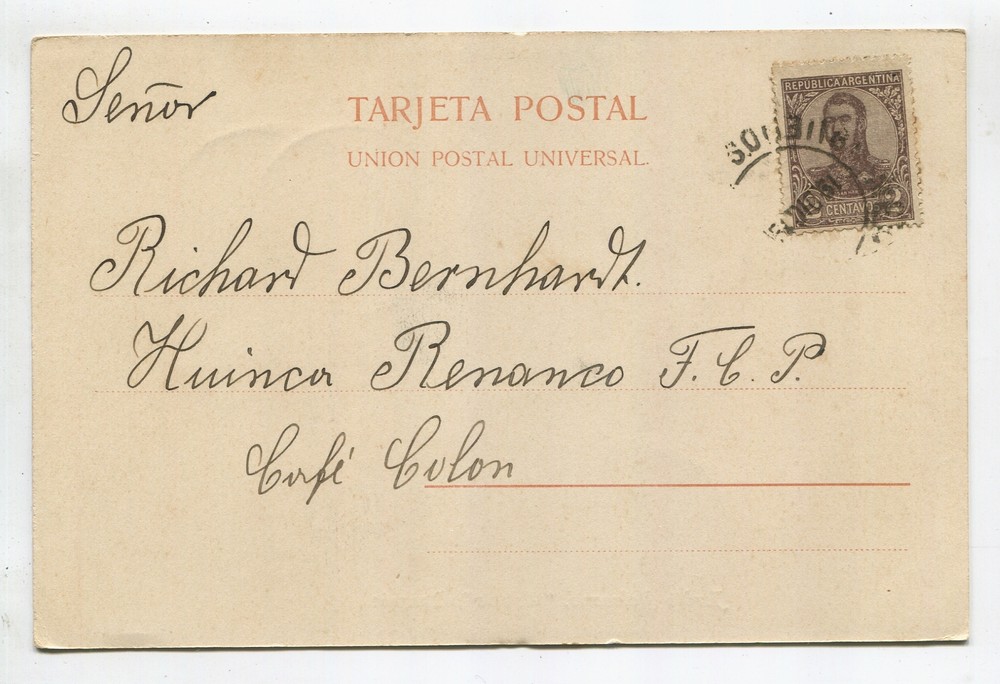 Señor
TARJETA POSTAL
UNION POSTAL UNIVERSAL.
REPUBLICA ARGENTINA
2 CENTAVOS 2
Richard Bernhardt.
Huinca Renanco F. C. P.
Café Colon